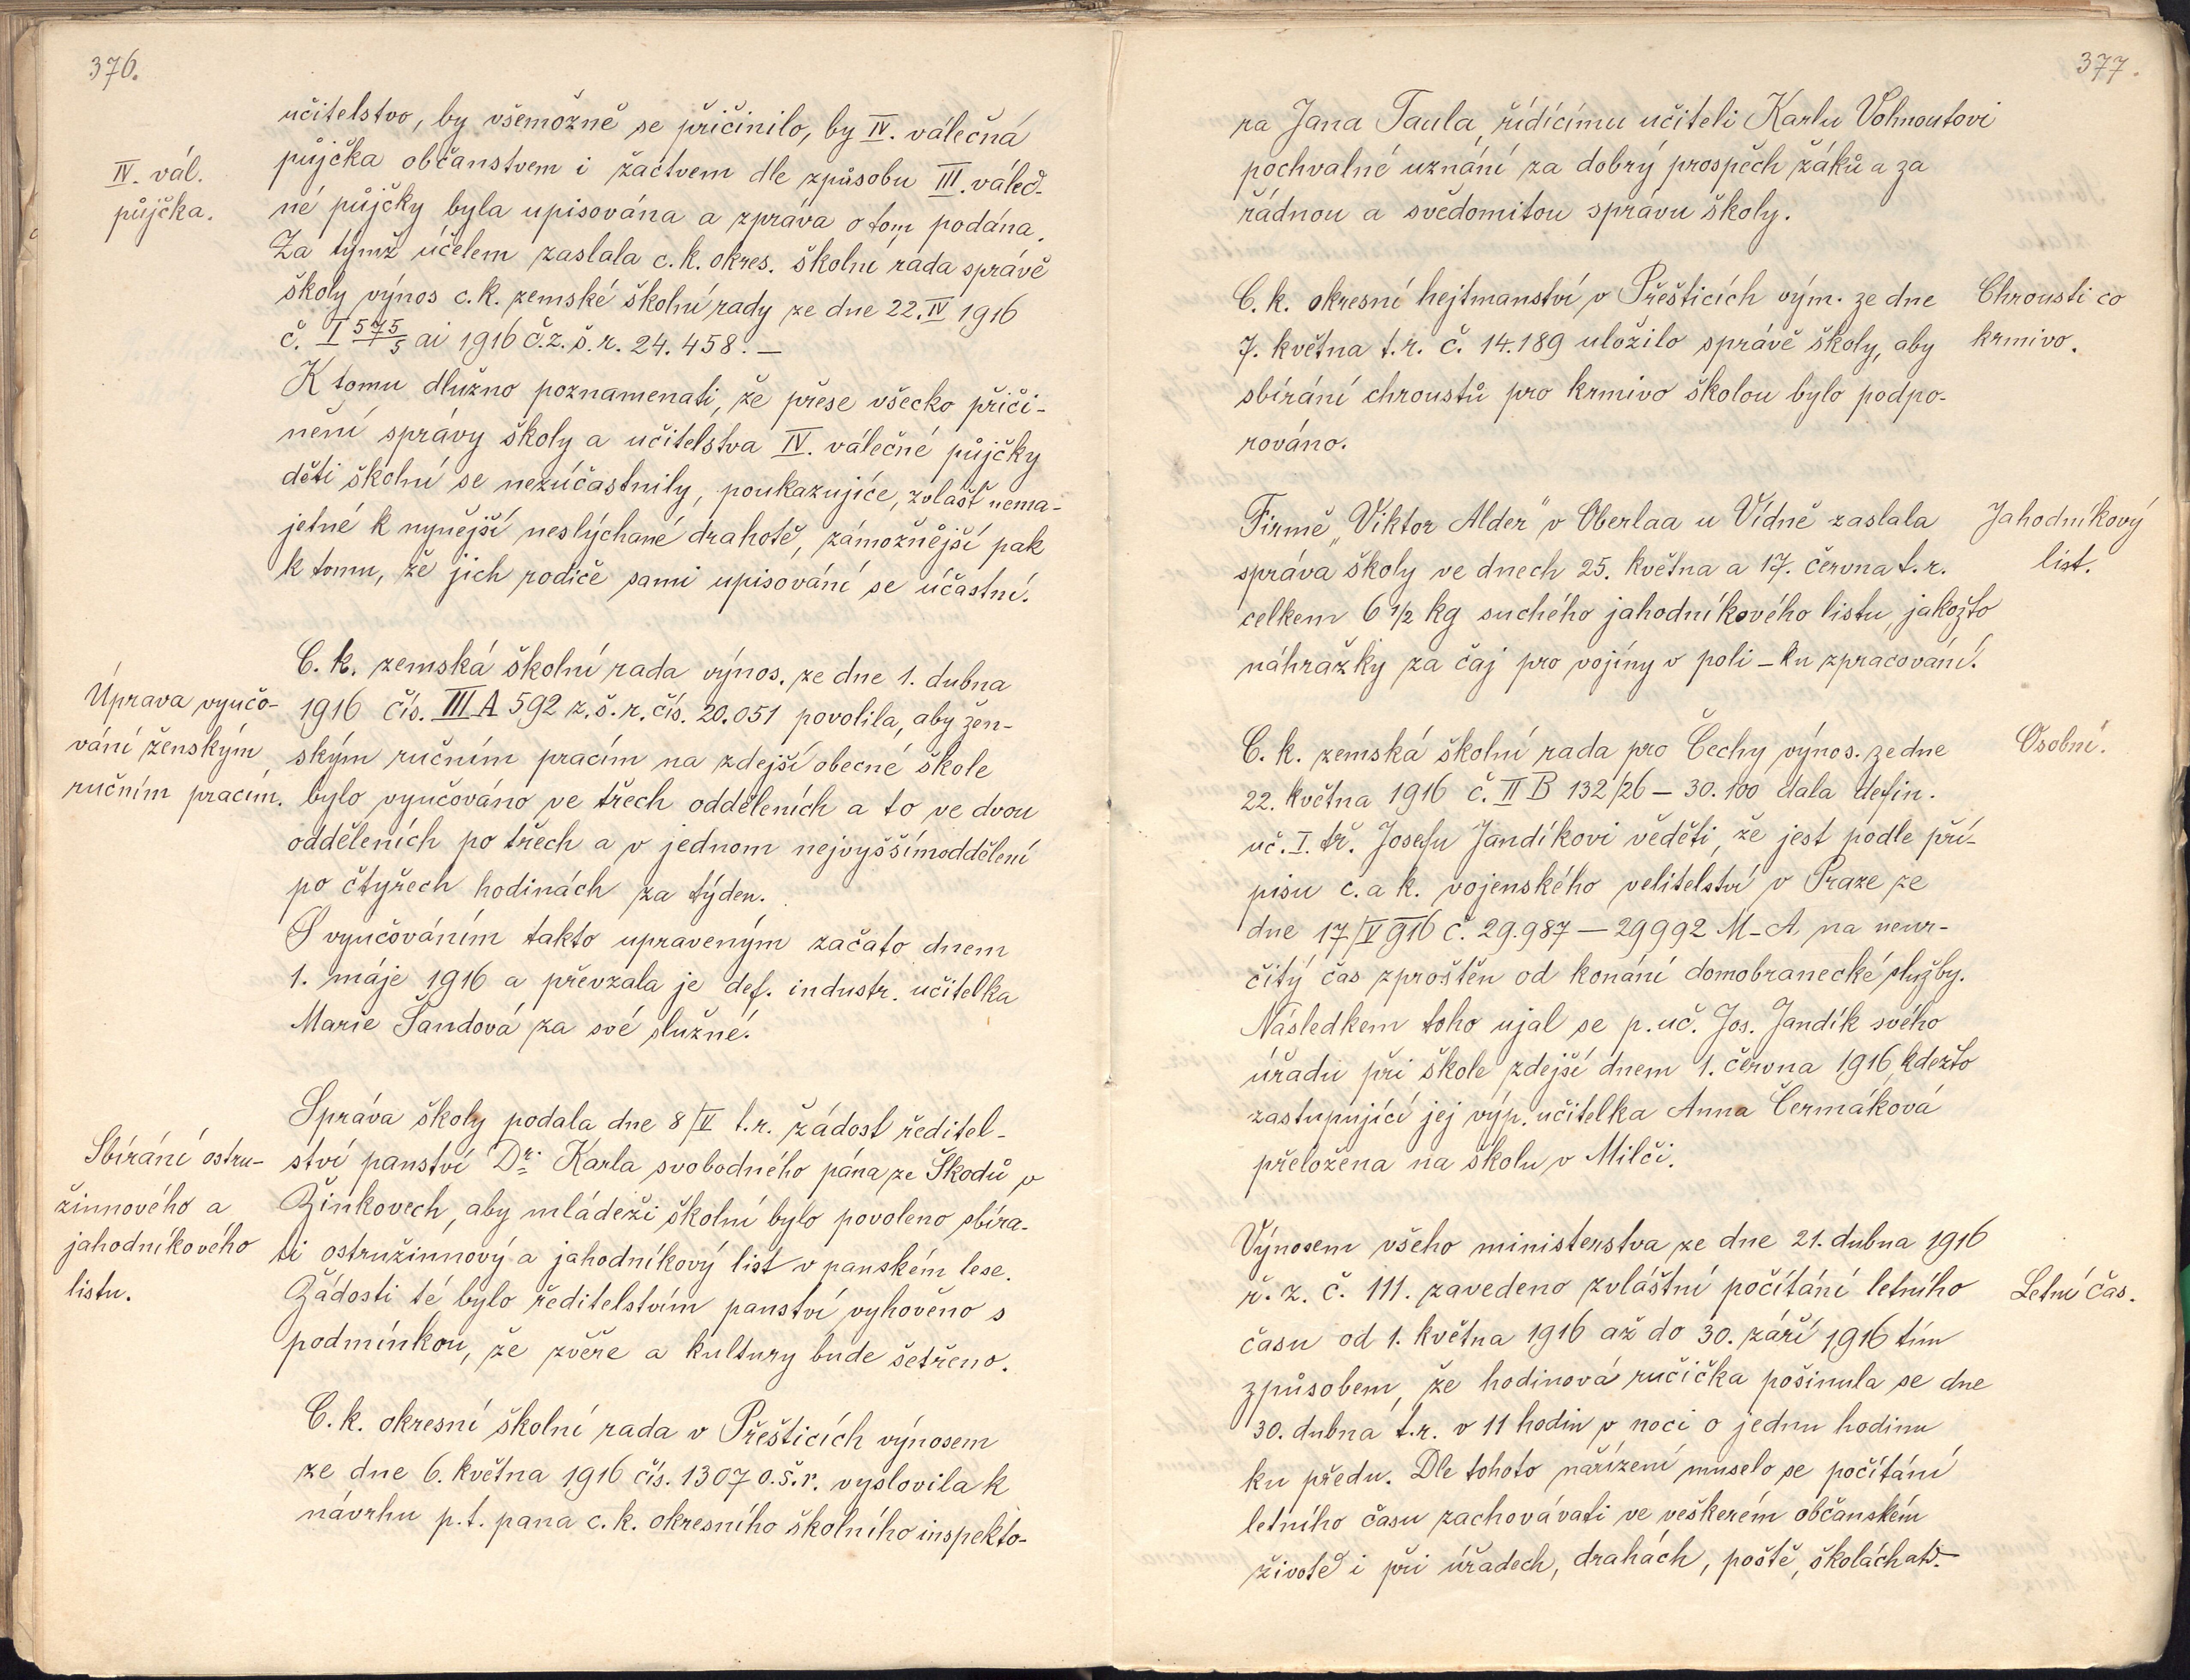 376.
učitelstvo, by všemožně se přičinilo, by IV. válečná
IV. vál.
půjčka.
půjčka občanstvem i žactvem dle způsobu III. váleč-
né půjčky byla upisována a zpráva o tom podána.
Za týmž účelem zaslala c. k. okres. školní rada správě
školy výnos c. k. zemské školní rady ze dne 22. IV 1916
č. I 575/5 ai 1916 č. z. š. r. 24.458. —
K tomu dlužno poznamenati, že přese všecko přiči-
nění správy školy a učitelstva IV. válečné půjčky
děti školní se nezúčastnily, poukazujíce, zvlášť nema-
jetné k nynější neslýchané drahotě, zámožnější pak
k tomu, že jich rodiče sami upisování se účastní.
C. k. zemská školní rada výnos. ze dne 1. dubna
Úprava vyučo-
vání ženským
ručním pracím.
1916 čís. III A 592 z. š. r. čís. 20.051 povolila, aby žen-
ským ručním pracím na zdejší obecné škole
bylo vyučováno ve třech odděleních a to ve dvou
odděleních po třech a v jednom nejvyšším oddělení
po čtyřech hodinách za týden.
S vyučováním takto upraveným začato dnem
1. máje 1916 a převzala je def. industr. učitelka
Marie Šandová za své služné.
Správa školy podala dne 8/V t. r. žádost ředitel-
Sbírání ostru-
žinnového a
jahodníkového
listu.
ství panství Dr. Karla svobodného pána ze Škodů v
Žinkovech, aby mládeži školní bylo povoleno sbíra-
ti ostružinnový a jahodníkový list v panském lese.
Žádosti té bylo ředitelstvím panství vyhověno s
podmínkou, že zvěře a kultury bude šetřeno.
C. k. okresní školní rada v Přešticích výnosem
ze dne 6. května 1916 čís. 1307 o. š. r. vyslovila k
návrhu p. t. pana c. k. okresního školního inspekto-
377.
ra Jana Taula, řídícímu učiteli Karlu Vohnoutovi
pochvalné uznání za dobrý prospěch žáků a za
řádnou a svědomitou správu školy.
C. k. okresní hejtmanství v Přešticích vým. ze dne
Chrousti co
krmivo.
7. května t. r. č. 14.189 uložilo správě školy, aby
sbírání chroustů pro krmivo školou bylo podpo-
rováno.
Firmě „Viktor Alder" v Oberlaa u Vídně zaslala
Jahodníkový
list.
správa školy ve dnech 25. května a 17. června t. r.
celkem 6 1/2 kg suchého jahodníkového listu, jakožto
náhražky za čaj pro vojíny v poli – ku zpracování.
C. k. zemská školní rada pro Čechy výnos. ze dne
Osobní.
22. května 1916 č. II B 132/26 – 30.100 dala defin.
uč. I. tř. Josefu Jandíkovi věděti, že jest podle pří-
pisu c. a k. vojenského velitelství v Praze ze
dne 17/V 916 č. 29.987 — 29992 M-A na neur-
čitý čas zproštěn od konání domobranecké služby.
Následkem toho ujal se p. uč. Jos. Jandík svého
úřadu při škole zdejší dnem 1. června 1916, kdežto
zastupující jej výp. učitelka Anna Čermáková
přeložena na školu v Milči.
Výnosem všeho ministerstva ze dne 21. dubna 1916
ř. z. č. 111. zavedeno zvláštní počítání letního
Letní čas.
času od 1. května 1916 až do 30. září 1916 tím
způsobem, že hodinová ručička pošinula se dne
30. dubna t. r. v 11 hodin v noci o jednu hodinu
ku předu. Dle tohoto nařízení muselo se počítání
letního času zachovávati ve veškerém občanském
životě i při úřadech, drahách, poště, školách atd.